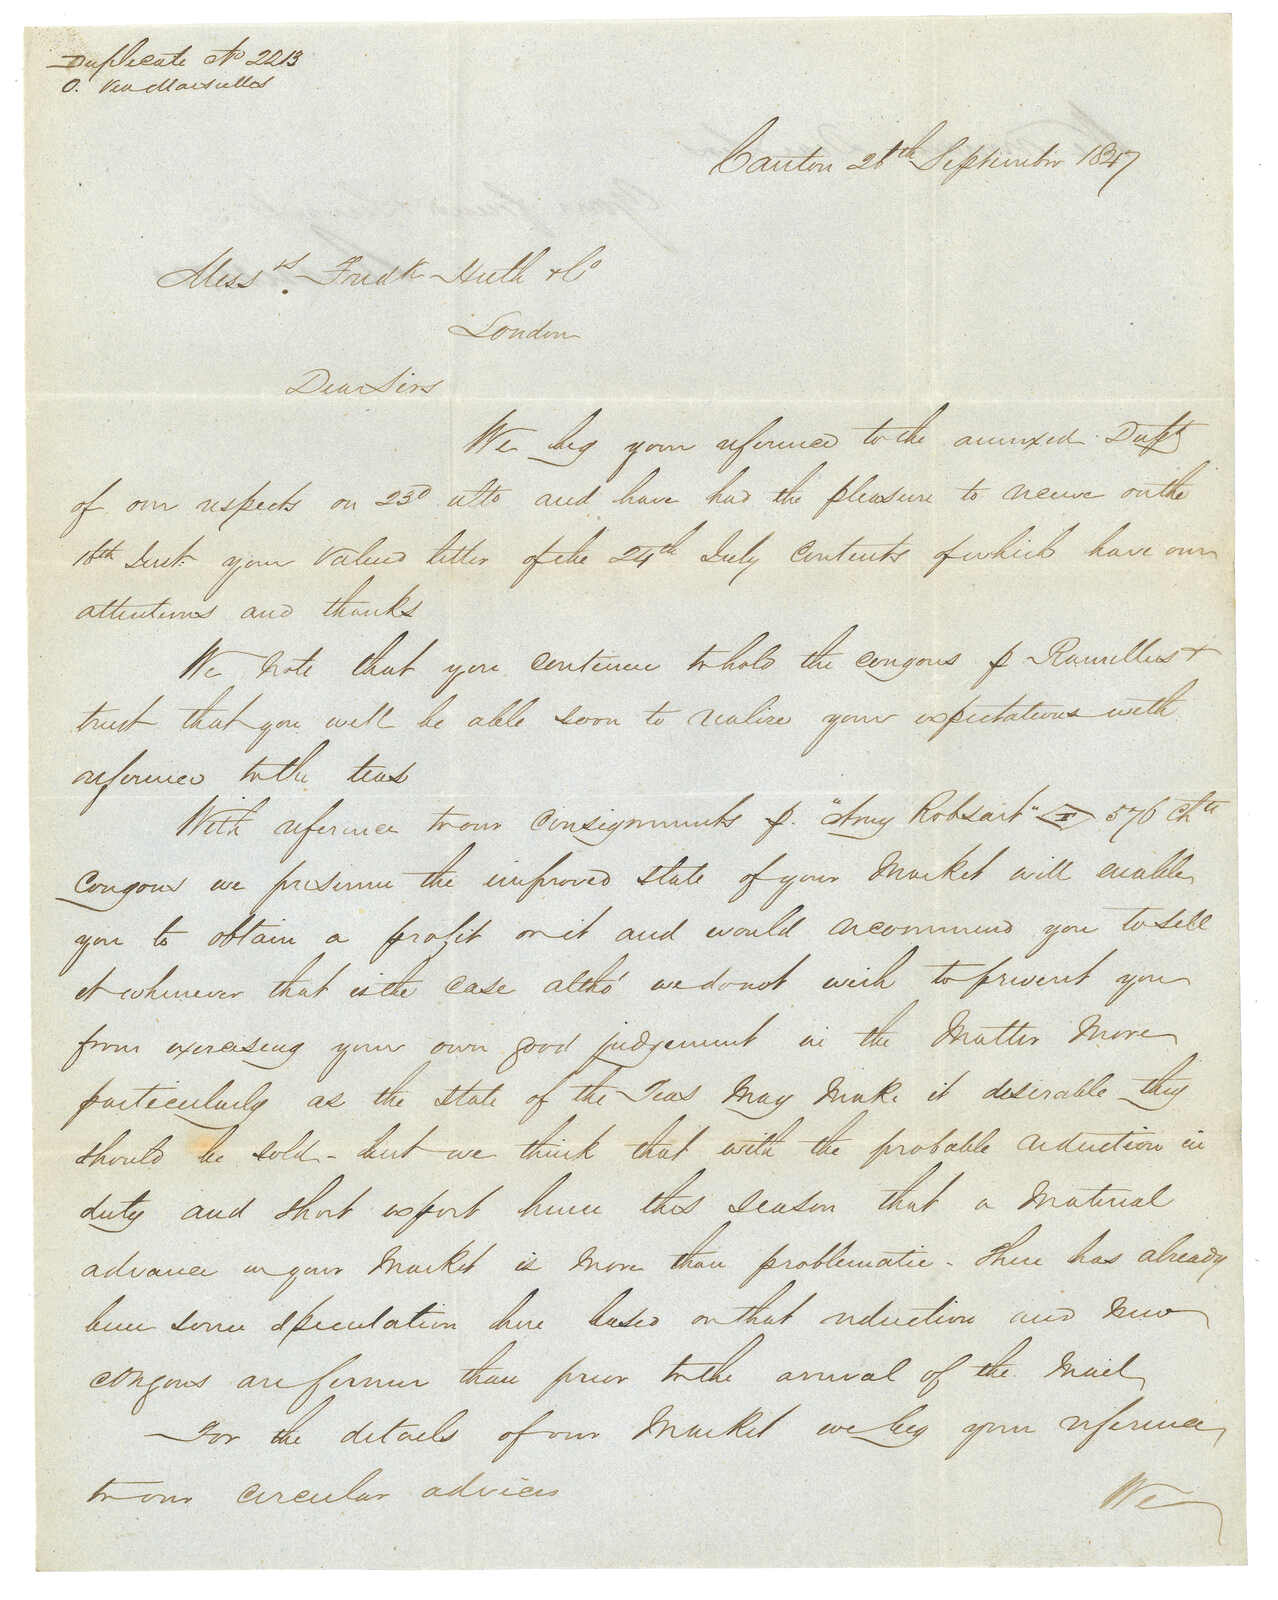 Duplicate No 2213
O. Via Marseilles
Canton 28th September 1847
Messrs. Fredk Huth & Co
London
Dear Sirs
We beg your reference to the annexed Dupt
of our respects on 23d ulto and have had the pleasure to receive on the
16th Inst. your valued letter of the 24th July contents of which have our
attentions and thanks
We note that you continue to hold the congous p Ramillies &
trust that you will be able soon to realise your expectations with
reference to the teas
With reference to our consignments p. "Amy Robsart" 576 Chts
Congous we presume the improved state of your Market will enable
you to obtain a profit on it and would recommend you to sell
it whenever that is the case altho' we do not wish to prevent you
from exercising your own good judgement in the Matter More
particularly as the state of the Teas May Make it desirable they
should be sold - but we think that with the probable reduction in
duty and short export hence this season that a Material
advance in your Market is More than problematic - there has already
been some speculation here based on that reduction and New
congous are firmer than prior to the arrival of the Mail
For the details of our Market we beg your reference
to our circular advices
We